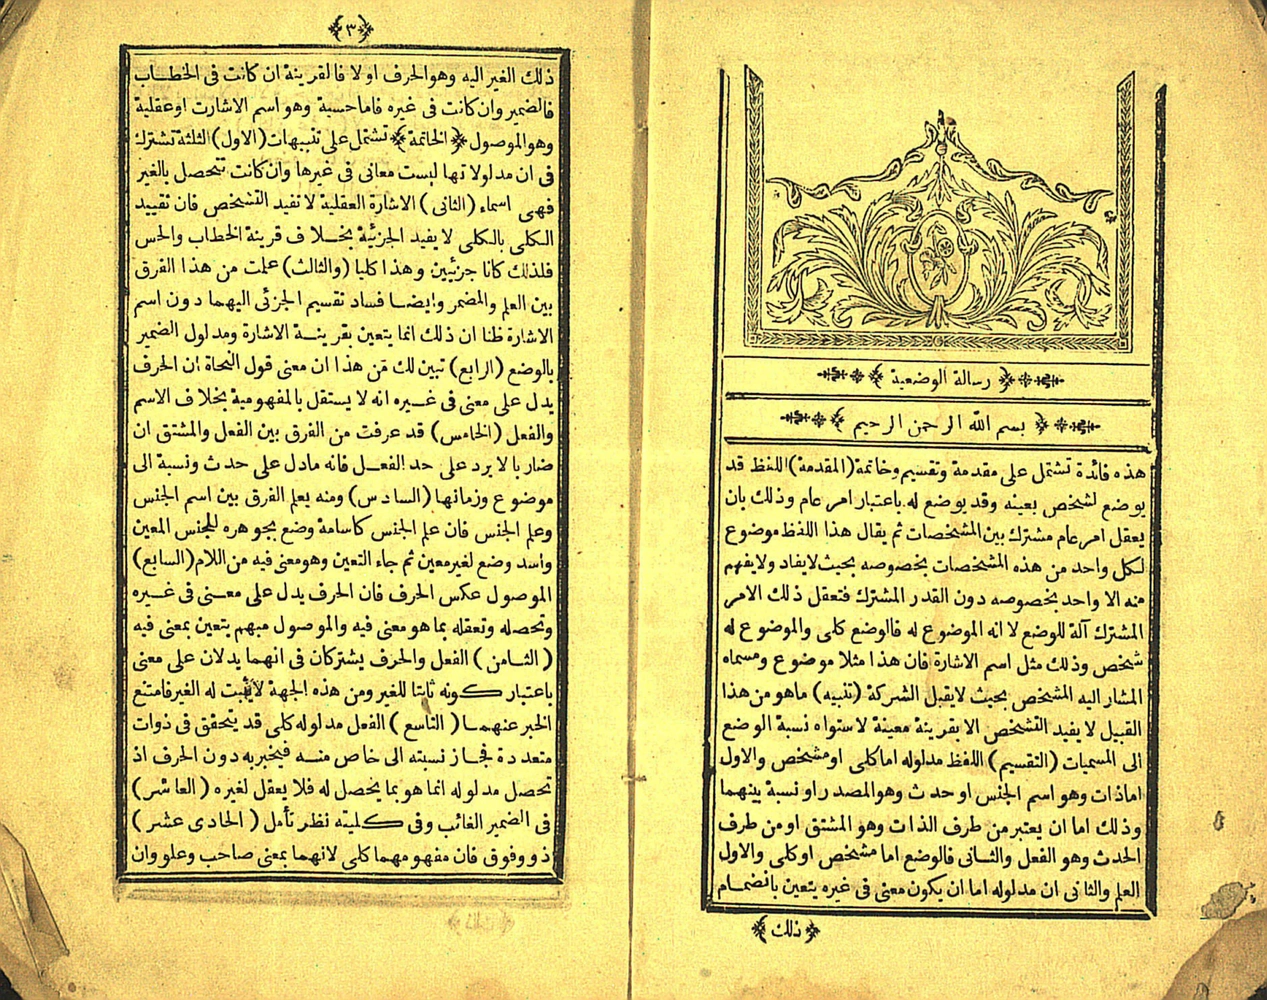 رسالة الوضعية
بسم الله الرحمن الرحيم
هذه فائدة تشتمل على مقدمة وتقسيم وخاتمة (المقدمة) اللفظ قد
يوضع لشخص بعينه وقد يوضع له باعتبار امر عام وذلك بان
يعقل امر عام مشترك بين المشخصات ثم يقال هذا اللفظ موضوع
لكل واحد من هذه المشخصات بخصوصه بحيث لا يفاد ولا يفهم
منه الا واحد بخصوصه دون القدر المشترك فتعقل ذلك الامر
المشترك آلة للوضع لا انه الموضوع له فالوضع كلى والموضوع له
شخص وذلك مثل اسم الاشارة فان هذا مثلا موضوع ومسماه
المشار اليه المشخص بحيث لا يقبل الشركة (تنبيه) ماهو من هذا
القبيل لا يفيد التشخص الا بقرينة معينة لاستواه نسبة الوضع
الى المسميات (التقسيم) اللفظ مدلوله اما كلى او مشخص والاول
اما ذات وهو اسم الجنس او حدث وهو المصدر او نسبة بينهما
وذلك اما ان يعتبر من طرف الذات وهو المشتق او من طرف
الحدث وهو الفعل والثانى فالوضع اما مشخص او كلى والاول
العلم والثانى ان مدلوله اما ان يكون معنى فى غيره يتعين بانضمام
ذلك
٣
ذلك الغير اليه وهو الحرف او لا فالقرينة ان كانت فى الخطاب
فالضمير وان كانت فى غيره فاما حسية وهو اسم الاشارت او عقلية
وهو الموصول (الخاتمة) تشتمل على تنبيهات (الاول) الثلثة تشترك
فى ان مدلولاتها ليست معانى فى غيرها وان كانت تتحصل بالغير
فهى اسماء (الثانى) الاشارة العقلية لا تفيد التشخص فان تقييد
الكلى بالكلى لا يفيد الجزئية بخلاف قرينة الخطاب والحس
فلذلك كانا جزئيين وهذا كليا (والثالث) علمت من هذا الفرق
بين العلم والمضمر وايضا فساد تقسيم الجزئى اليهما دون اسم
الاشارة ظنا ان ذلك انما يتعين بقرينة الاشارة ومدلول الضمير
بالوضع (الرابع) تبين لك من هذا ان معنى قول النحاة ان الحرف
يدل على معنى فى غيره انه لا يستقل بالمفهومية بخلاف الاسم
والفعل (الخامس) قد عرفت من الفرق بين الفعل والمشتق ان
ضاربا لا يرد على حد الفعل فانه مادل على حدث ونسبة الى
موضوع وزمانها (السادس) ومنه يعلم الفرق بين اسم الجنس
وعلم الجنس فان علم الجنس كاسامة وضع بجوهره للجنس المعين
واسد وضع لغير معين ثم جاء التعين وهو معنى فيه من اللام (السابع)
الموصول عكس الحرف فان الحرف يدل على معنى فى غيره
وتحصله وتعقله بما هو معنى فيه والموصول مبهم يتعين بمعنى فيه
(الثامن) الفعل والحرف يشتركان فى انهما يدلان على معنى
باعتبار كونه ثابتا للغير ومن هذه الجهة لا يثبت له الغير فامتنع
الخبر عنهما (التاسع) الفعل مدلوله كلى قد يتحقق فى ذوات
متعددة فجاز نسبته الى خاص منه فيخبر به دون الحرف اذ
تحصل مدلوله انما هو بما يحصل له فلا يعقل لغيره (العاشر)
فى الضمير الغائب وفى كليته نظر تأمل (الحادى عشر)
ذو وفوق فان مفهومهما كلى لانهما بمعنى صاحب وعلو وان